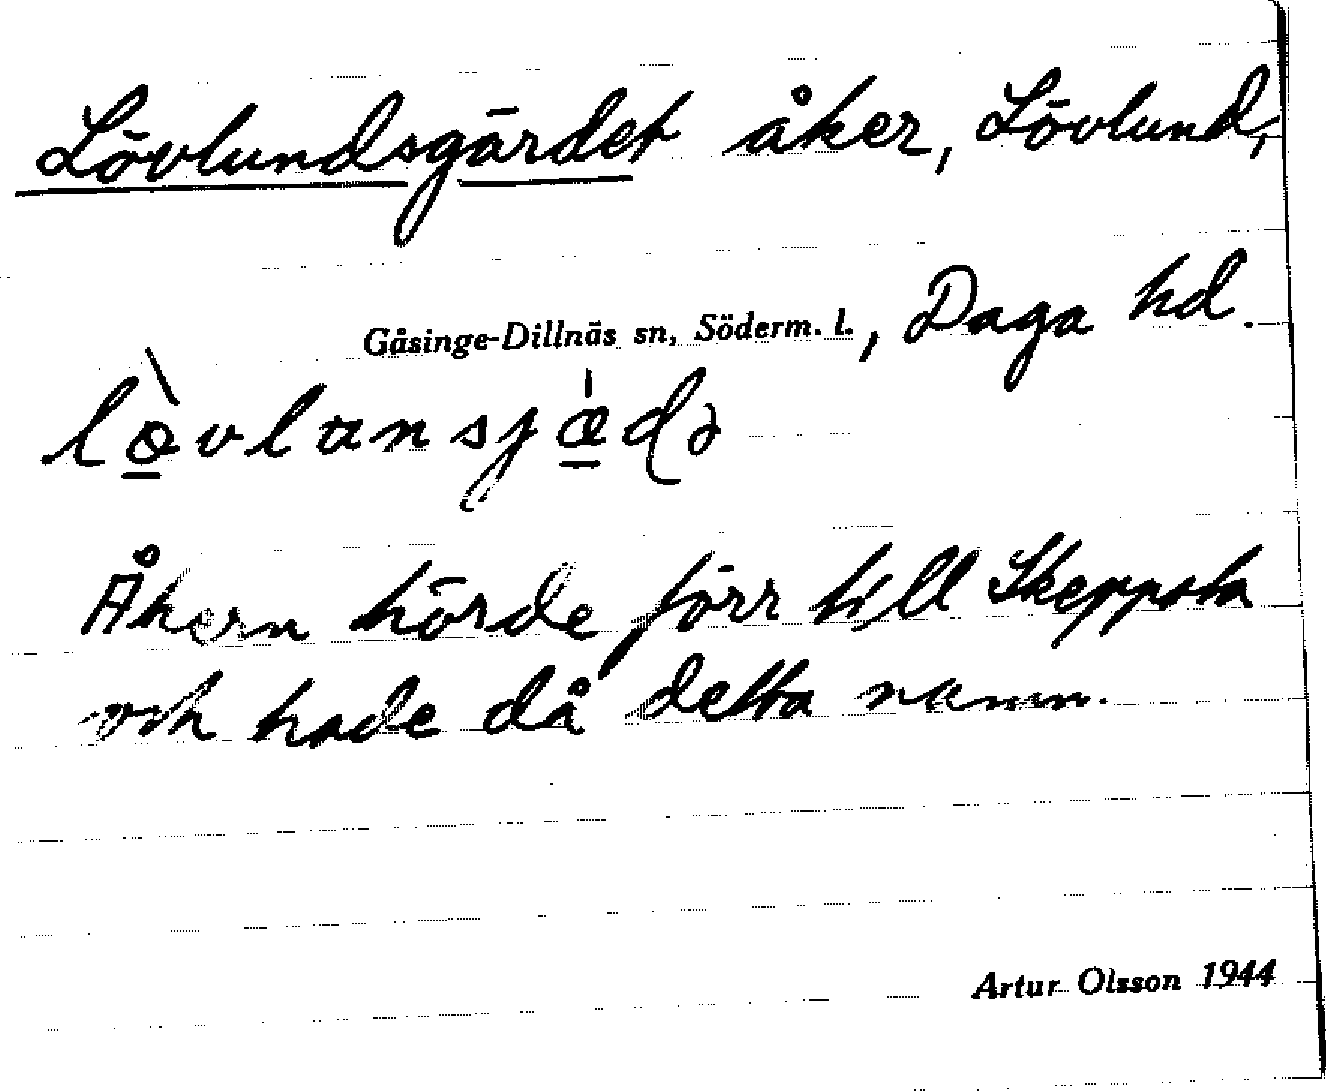 Lövlundsgärdet åker, Lövlund,
Gåsinge-Dillnäs sn, Söderm. l., Daga hd.
Åkern hörde förr till Skeppsta
och hade då detta namn.
Artur Olsson 1944